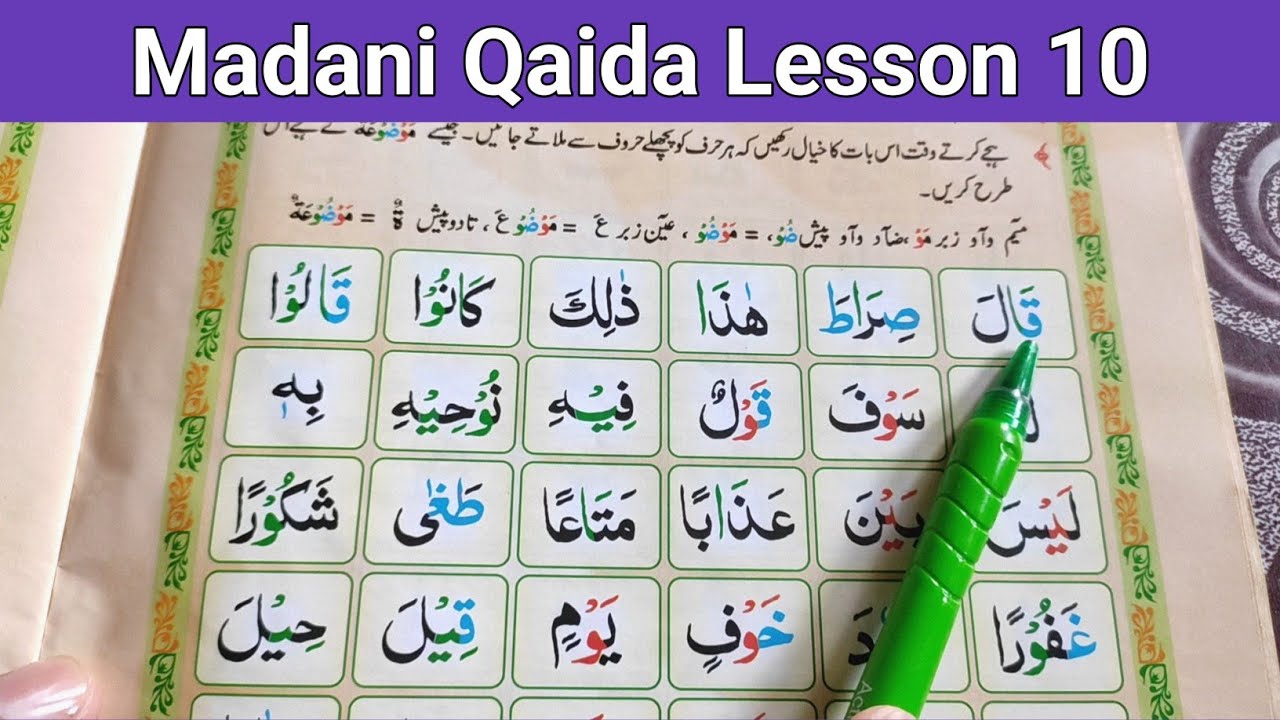 Madani Qaida Lesson 10
ہجے کرتے وقت اس بات کا خیال رکھیں کہ ہر حرف کو پچھلے حروف سے ملاتے جائیں۔ جیسے مَوْضُوْعَةٌ کے ہجے اس
طرح کریں۔
میم واو زبر مَوْ، ضاد واو پیش ضُوْ، = مَوْضُوْ، عین زبر عَ = مَوْضُوْعَ، تا دو پیش ةٌ = مَوْضُوْعَةٌ
قَالَ صِرَاطَ هٰذَا ذٰلِكَ كَانُوْا قَالُوْا
سَوْفَ قَوْلٌ فِيْهِ نُوْحِيْهِ بِهٖ
لَيْسَ بَيْنَ عَذَابًا مَتَاعًا طَغٰى شَكُوْرًا
غَفُوْرًا خَوْفٍ يَوْمٍ قِيْلَ حِيْلَ